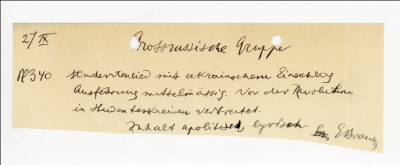 2/IX
Grossrussische Gruppe
№340 Studentenlied mit ukrainischem Einschlag
Ausführung mittelmässig. Vor der Revolution
in Studentenkreisen verbreitet.
Inhalt apolitisch, lyrisch.